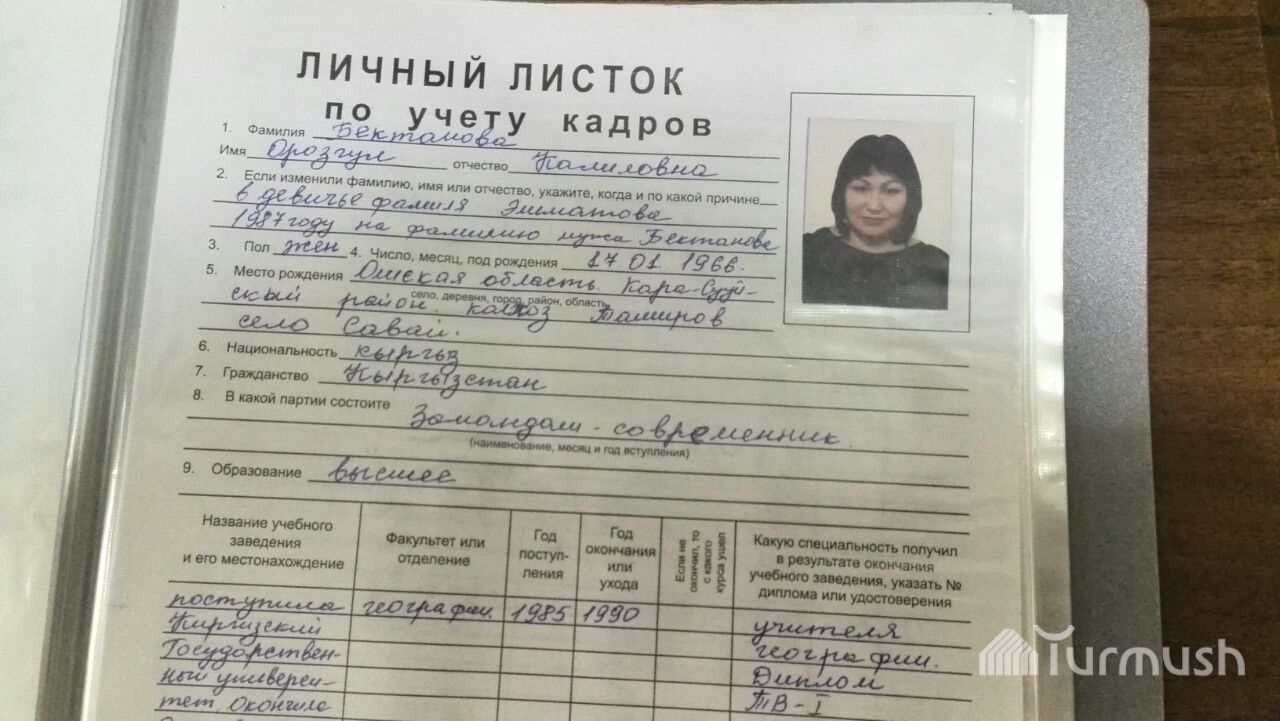 ЛИЧНЫЙ ЛИСТОК
по учету кадров
1. Фамилия Бектанова
Имя Орозгул отчество Калиловна
2. Если изменили фамилию, имя или отчество, укажите, когда и по какой причине
в девичье фамилия Эшматова
1987 году на фамилию мужа Бектанова
3. Пол жен 4. Число, месяц, под рождения 17 01 1966.
5. Место рождения Ошская область. Кара-Суй-
село, деревня, город, район, область
ский район. колхоз Таширов
село Савай.
6. Национальность кыргыз
7. Гражданство Кыргызстан
8. В какой партии состоите
Замандаш - современник.
(наименование, месяц и год вступления)
9. Образование высшее
Название учебного заведения и его местонахождение
Факультет или отделение
Год поступ-ления
Год окончания или ухода
Если не окончил, то с какого курса ушел
Какую специальность получил в результате окончания учебного заведения, указать № диплома или удостоверения
поступила географии. 1985 1990
Киргизский учителя
Государствен- географии.
ный универси- Диплом
тет. Окончила ТВ-I
Turmush